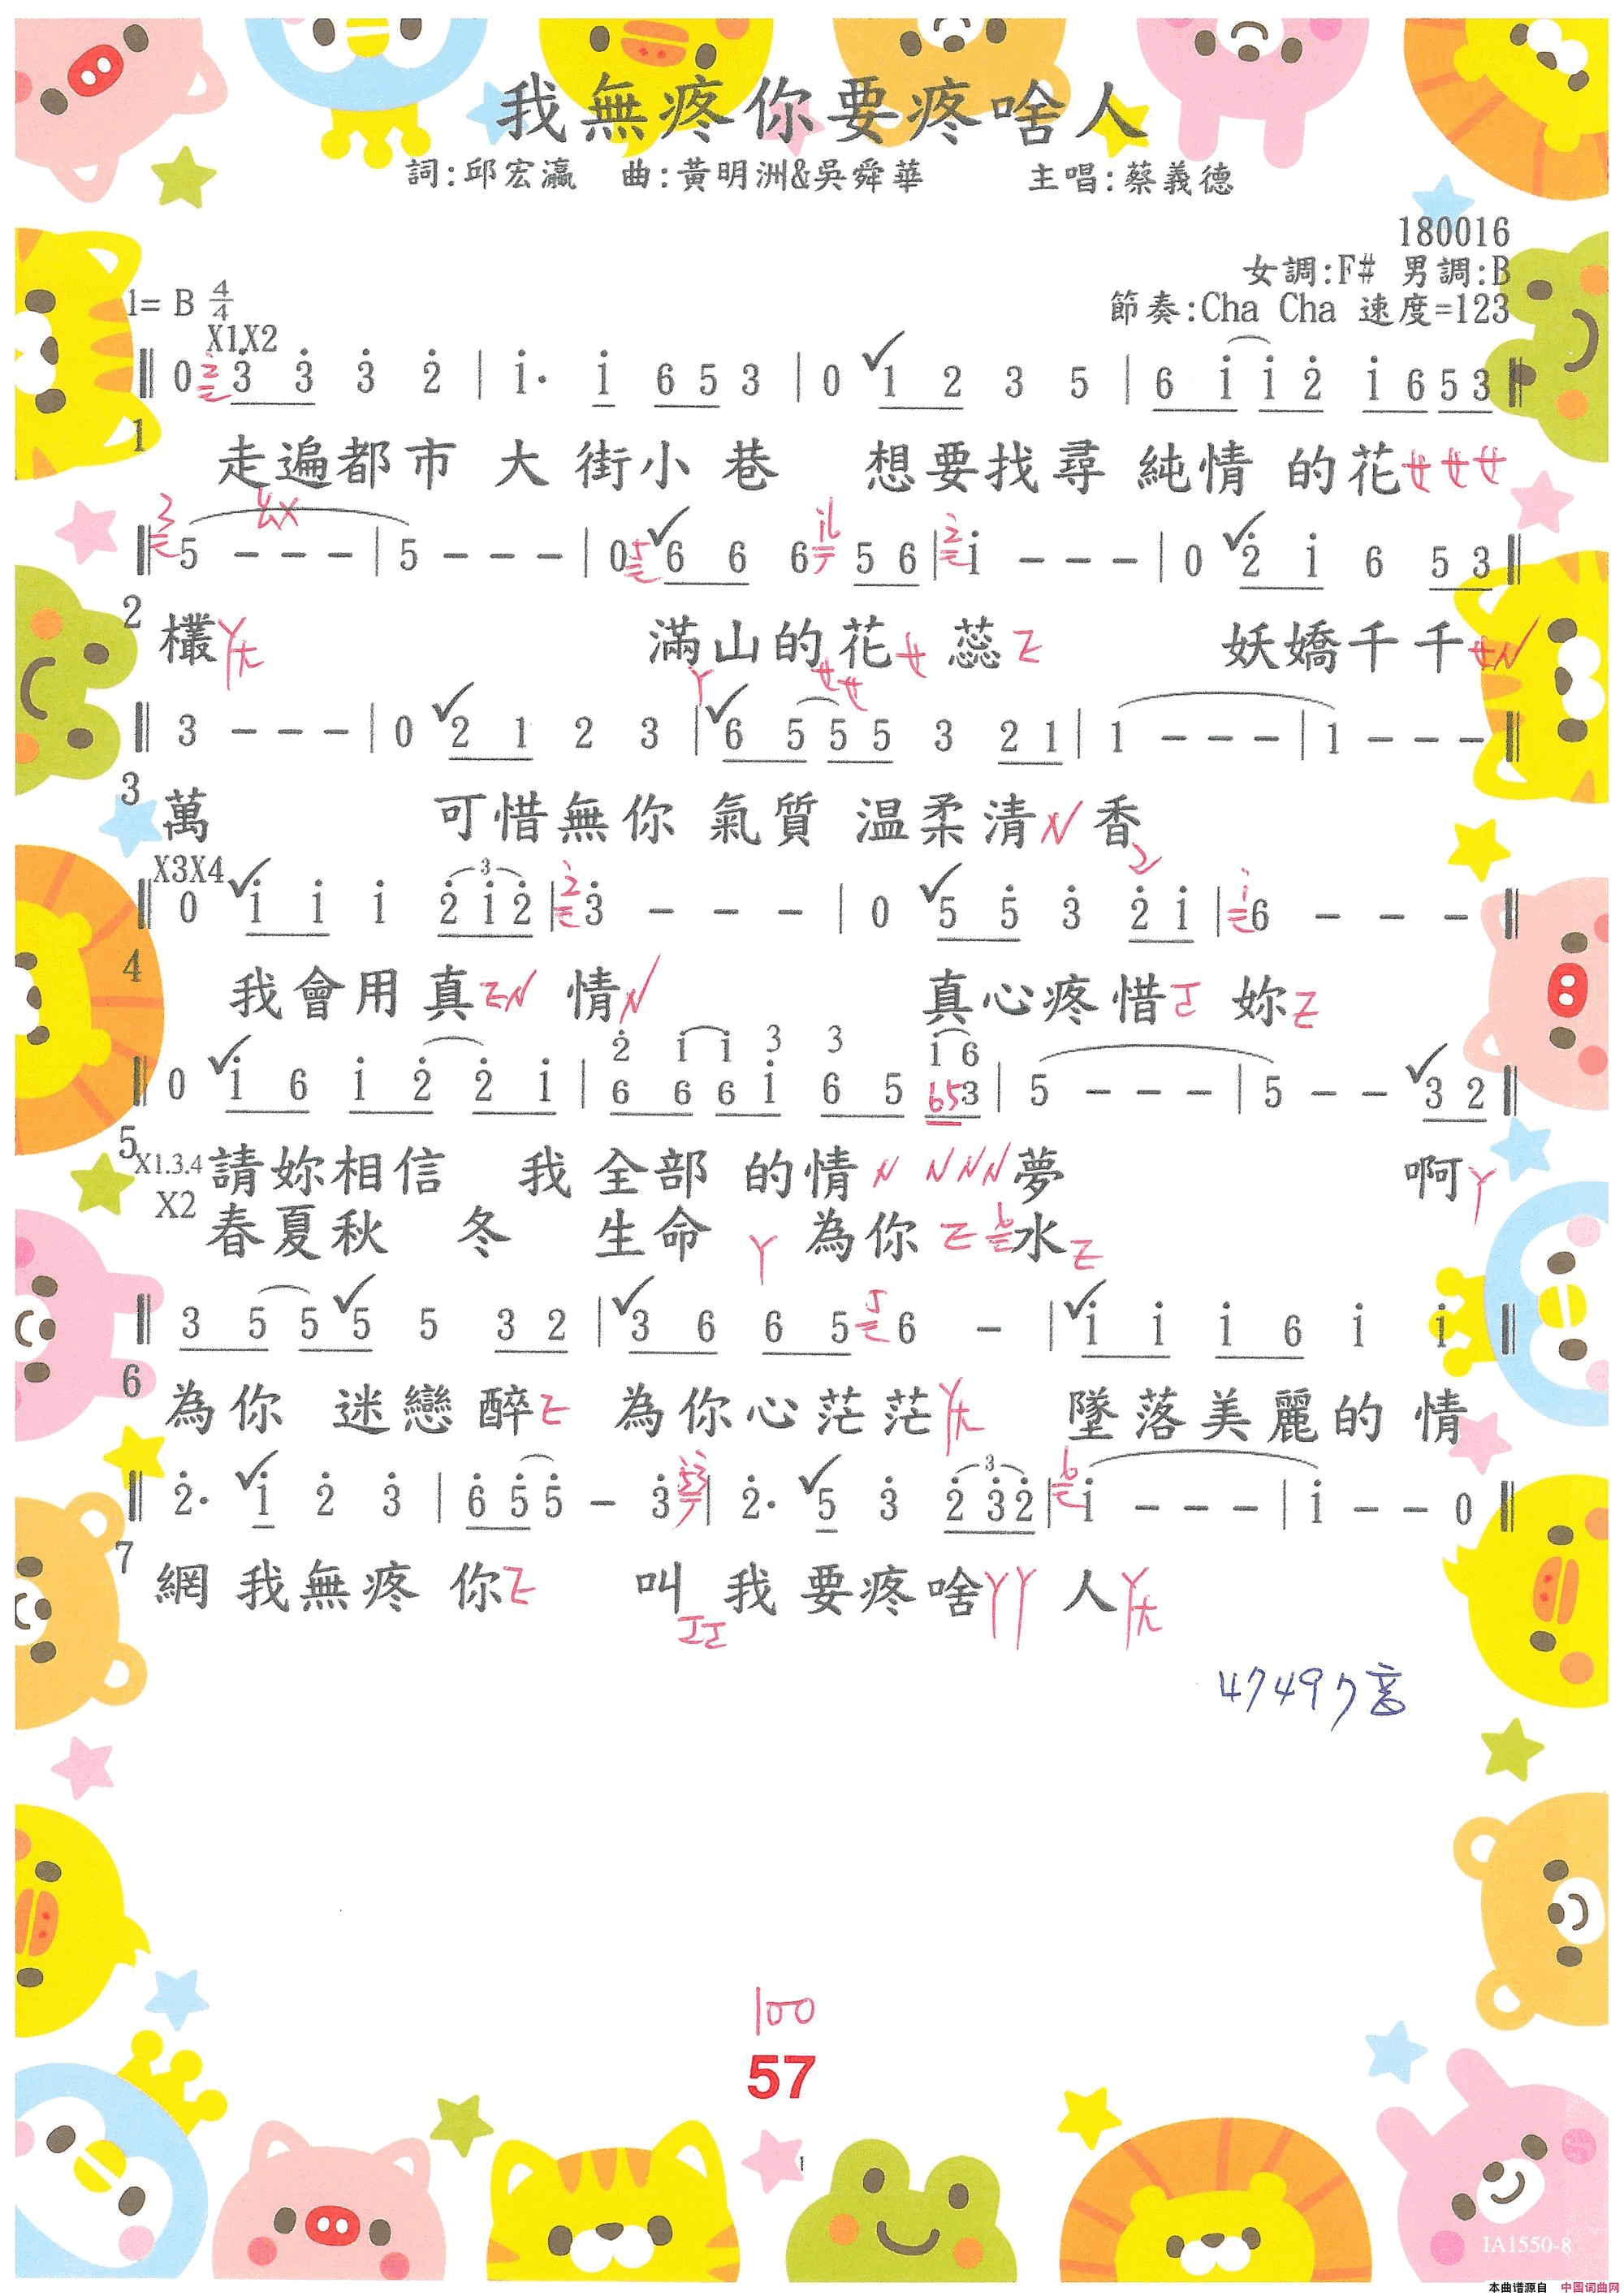 我無疼你要疼啥人
詞:邱宏瀛 曲:黃明洲&吳舜華 主唱:蔡義德
180016
女調:F# 男調:B
1= B 4/4
節奏:Cha Cha 速度=123
X1X2
‖ 0 3̇ 3̇ 3̇ 2̇ | i· i 6 5 3 | 0 ✓1 2 3 5 | 6 i i 2̇ i 6 5 3 ‖
1
走遍都市 大街小巷 想要找尋 純情 的花
‖ 5 - - - | 5 - - - | 0 ✓6 6 6 5 6 | i - - - | 0 ✓2̇ i 6 5 3 ‖
2
欉 滿山的花蕊 妖嬌千千
‖ 3 - - - | 0 ✓2 1 2 3 | ✓6 5 5 5 3 2 1 | 1 - - - | 1 - - - ‖
3
萬 可惜無你 氣質 温柔清香
X3X4
‖ 0 ✓i i i 2̇ i 2̇ | 3̇ - - - | 0 ✓5 5 3̇ 2̇ i | 6 - - - ‖
4
我會用真 情 真心疼惜 妳
2̇ i i 3 3 i 6
‖ 0 ✓i 6 i 2̇ 2̇ i | 6 6 6 i 6 5 3 | 5 - - - | 5 - - ✓3 2 ‖
5
X1.3.4 請妳相信 我全部 的情 夢 啊
X2 春夏秋 冬 生命 為你 水
‖ 3 5 5 ✓5 5 3 2 | ✓3 6 6 5 6 - | ✓i i i 6 i i ‖
6
為你 迷戀醉 為你心茫茫 墜落美麗的 情
‖ 2̇· ✓i 2̇ 3̇ | 6 5 5 - 3̇ | 2̇· ✓5 3̇ 2̇ 3̇ 2̇ | i - - - | i - - 0 ‖
7
網 我無疼 你 叫 我 要疼啥 人
100
57
1
IA1550-8
本曲谱源自 中国词曲网